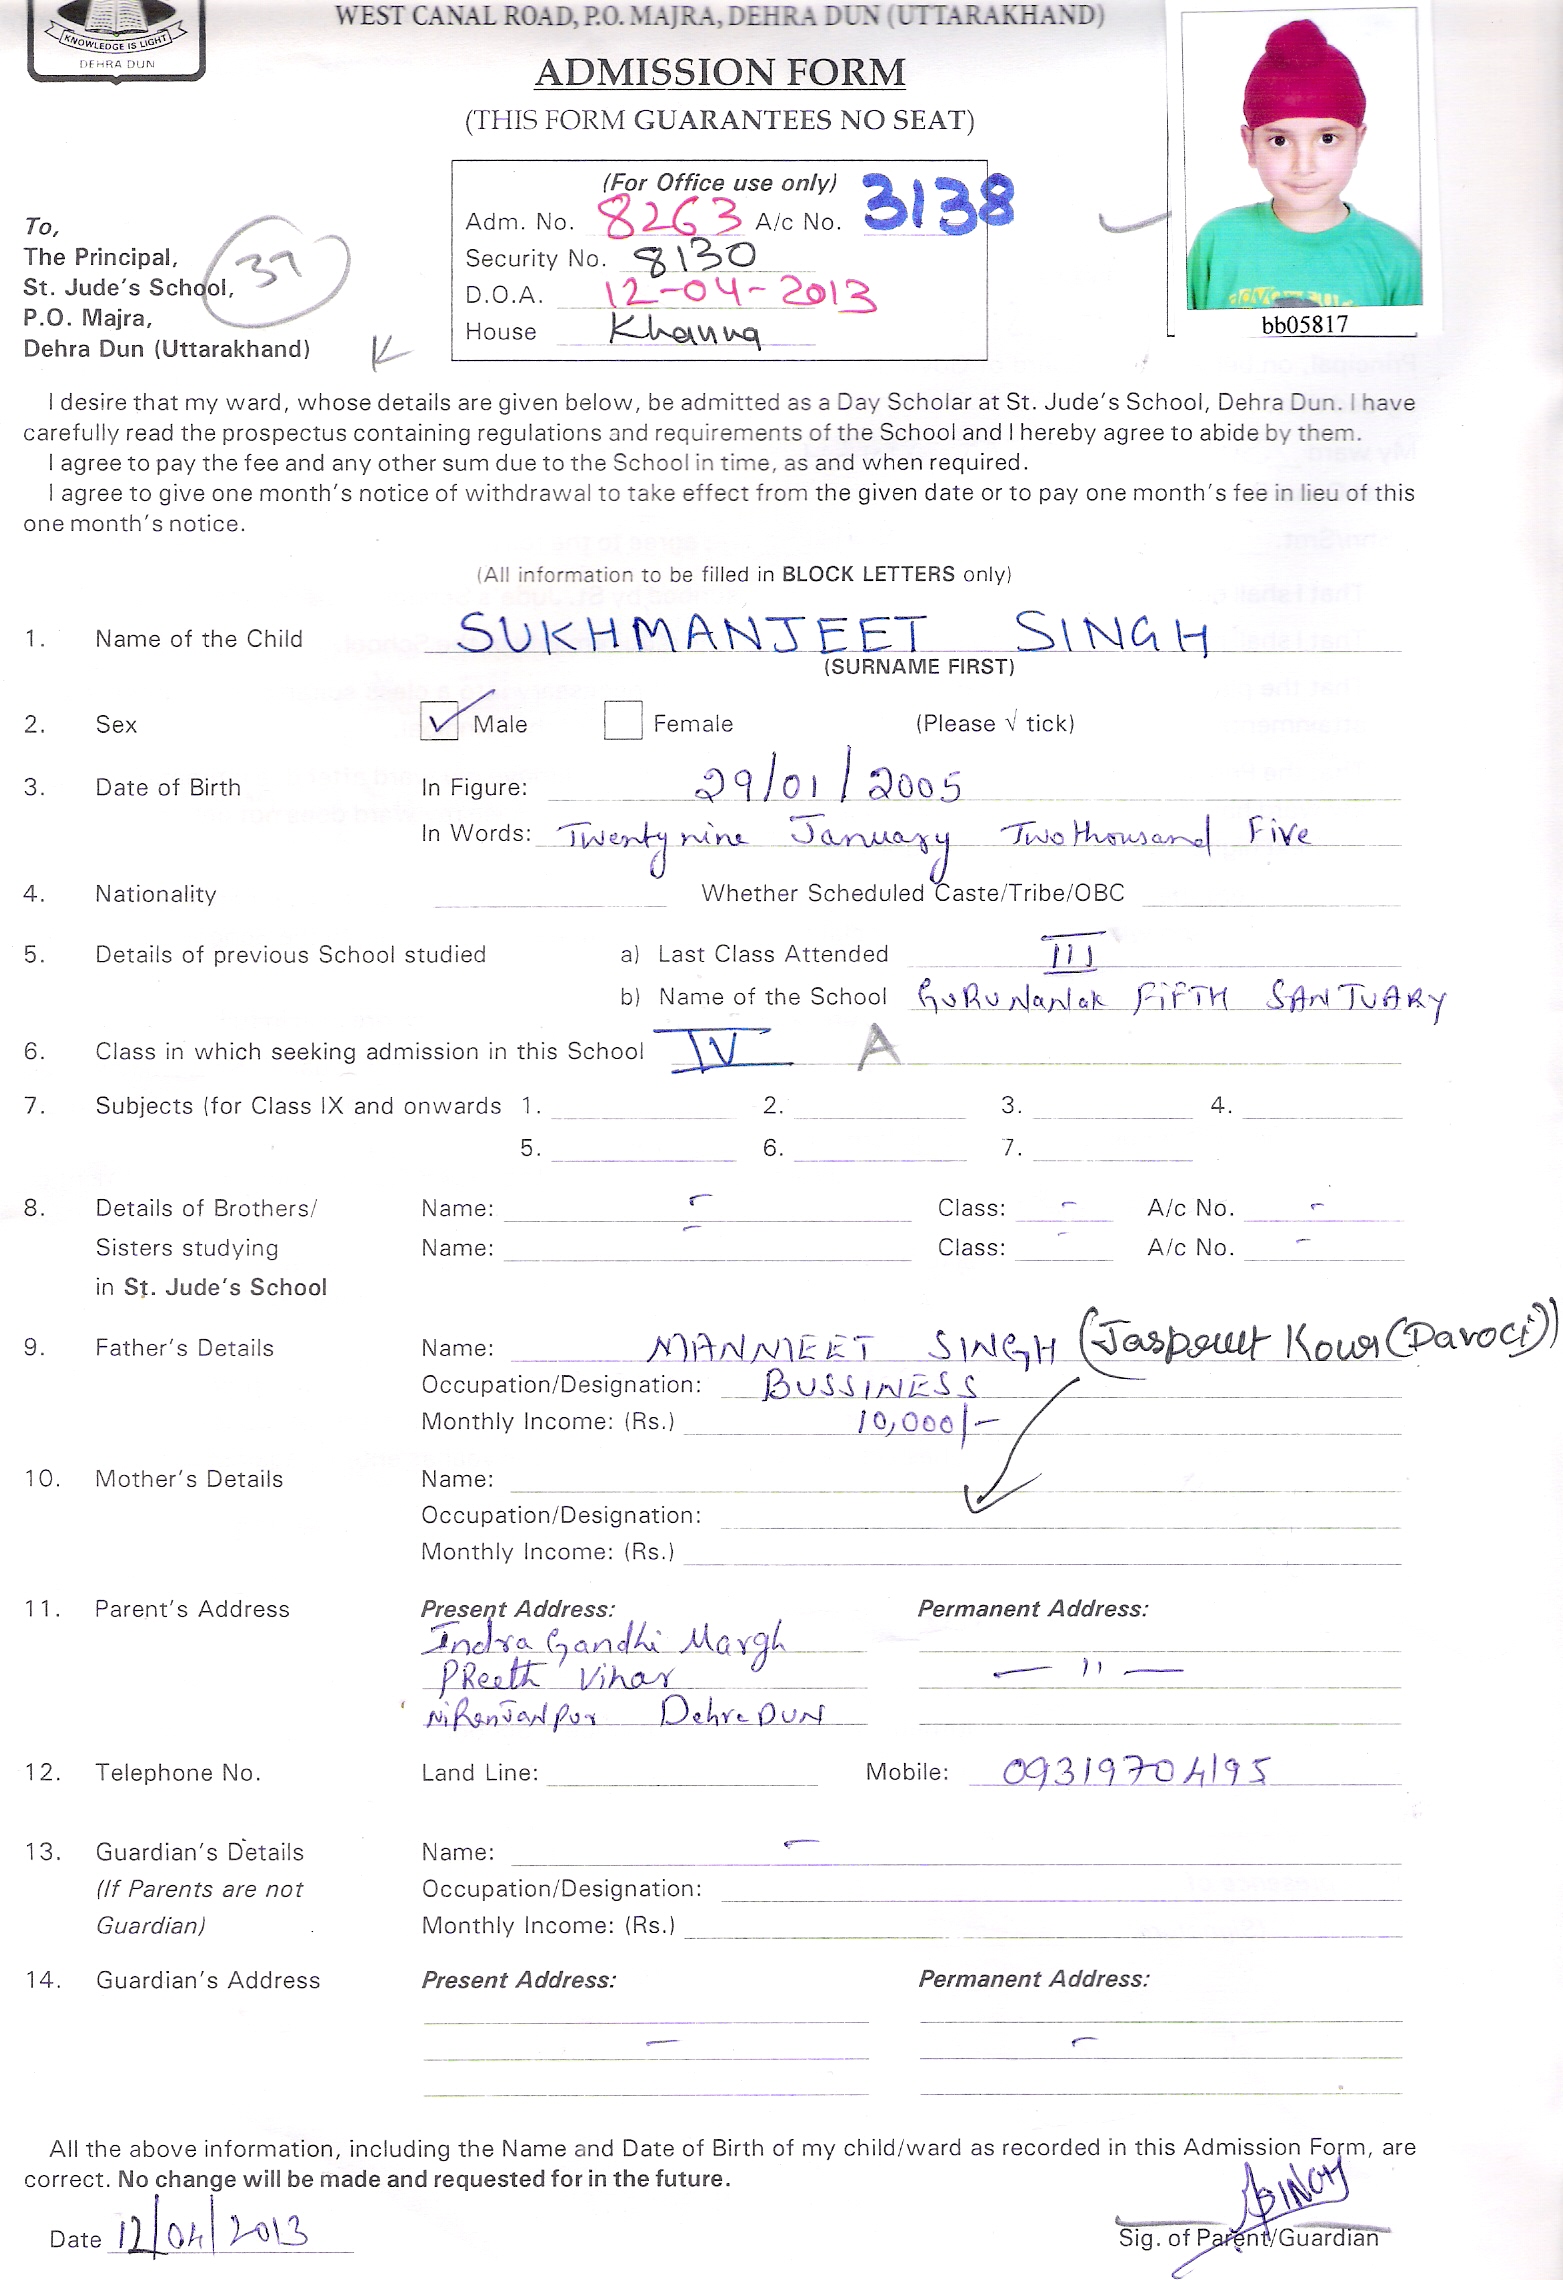 WEST CANAL ROAD, P.O. MAJRA, DEHRA DUN (UTTARAKHAND)
KNOWLEDGE IS LIGHT
DEHRA DUN
ADMISSION FORM
(THIS FORM GUARANTEES NO SEAT)
(For Office use only)
Adm. No. 8263 A/c No. 3138
Security No. 8130
D.O.A. 12-04-2013
House Khanna
bb05817
To,
The Principal,
St. Jude's School,
P.O. Majra,
Dehra Dun (Uttarakhand)
37
K
I desire that my ward, whose details are given below, be admitted as a Day Scholar at St. Jude's School, Dehra Dun. I have
carefully read the prospectus containing regulations and requirements of the School and I hereby agree to abide by them.
I agree to pay the fee and any other sum due to the School in time, as and when required.
I agree to give one month's notice of withdrawal to take effect from the given date or to pay one month's fee in lieu of this
one month's notice.
(All information to be filled in BLOCK LETTERS only)
1. Name of the Child SUKHMANJEET SINGH
(SURNAME FIRST)
2. Sex ✓ Male Female (Please √ tick)
3. Date of Birth In Figure: 29/01/2005
In Words: Twenty nine January Two thousand Five
4. Nationality Whether Scheduled Caste/Tribe/OBC
5. Details of previous School studied a) Last Class Attended III
b) Name of the School GURU Nanak FIFTH SANTUARY
6. Class in which seeking admission in this School IV A
7. Subjects (for Class IX and onwards 1. 2. 3. 4.
5. 6. 7.
8. Details of Brothers/ Name: - Class: - A/c No. -
Sisters studying Name: - Class: - A/c No. -
in St. Jude's School
9. Father's Details Name: MANMEET SINGH (Jaspreet Kour
Occupation/Designation: BUSSINESS
Monthly Income: (Rs.) 10,000/-
10. Mother's Details Name:
Occupation/Designation:
Monthly Income: (Rs.)
11. Parent's Address Present Address: Permanent Address:
Indra Gandhi Margh
PReeth Vihar — " —
NiRanJanpur DehraDUN
12. Telephone No. Land Line: Mobile: 09319704195
13. Guardian's Details Name: -
(If Parents are not Occupation/Designation:
Guardian) Monthly Income: (Rs.)
14. Guardian's Address Present Address: Permanent Address:
- -
All the above information, including the Name and Date of Birth of my child/ward as recorded in this Admission Form, are
correct. No change will be made and requested for in the future.
Date 12/04/2013
Sig. of Parent/Guardian